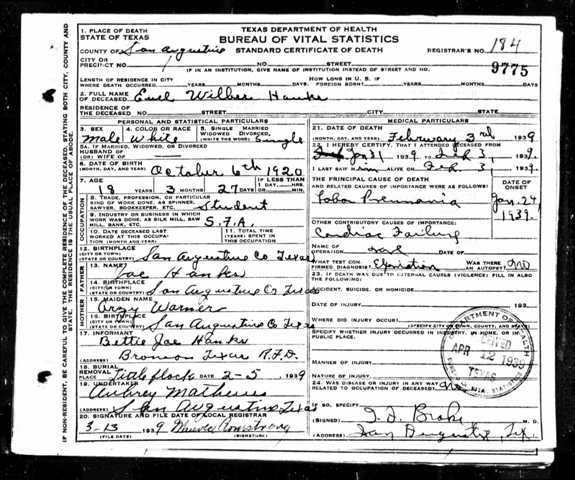 1. PLACE OF DEATH
STATE OF TEXAS
TEXAS DEPARTMENT OF HEALTH
BUREAU OF VITAL STATISTICS
COUNTY OF San Augustine STANDARD CERTIFICATE OF DEATH REGISTRAR'S NO. 184
CITY OR PRECINCT NO. NO. STREET 9775
IF IN AN INSTITUTION, GIVE NAME OF INSTITUTION INSTEAD OF STREET AND NO.
LENGTH OF RESIDENCE IN CITY WHERE DEATH OCCURRED YEARS MONTHS DAYS HOW LONG IN U. S. IF FOREIGN BORN? YEARS MONTHS DAYS
2. FULL NAME OF DECEASED Wilber Hanks
RESIDENCE OF THE DECEASED NO. STREET CITY COUNTY STATE
PERSONAL AND STATISTICAL PARTICULARS
3. SEX 4. COLOR OR RACE 5. SINGLE MARRIED WIDOWED, DIVORCED
Male White Single
5A. IF MARRIED, WIDOWED, OR DIVORCED
HUSBAND OF (OR) WIFE OF
6. DATE OF BIRTH (MONTH, DAY, AND YEAR) October 6th 1920
7. AGE YEARS MONTHS DAYS IF LESS THAN 1 DAY HRS. MIN.
18 3 27
8. TRADE, PROFESSION, OR PARTICULAR KIND OF WORK DONE, AS SPINNER, SAWYER, BOOKKEEPER, ETC. Student
9. INDUSTRY OR BUSINESS IN WHICH WORK WAS DONE, AS SILK MILL, SAW MILL, BANK, ETC. S.F.A.
10. DATE DECEASED LAST WORKED AT THIS OCCUPATION (MONTH AND YEAR) 11. TOTAL TIME (YEARS) SPENT IN THIS OCCUPATION
12. BIRTHPLACE (CITY OR TOWN) (STATE OR COUNTRY) San Augustine Co Texas
FATHER
13. NAME Joe Hanks
14. BIRTHPLACE (CITY OR TOWN) (STATE OR COUNTRY) San Augustine Co Texas
MOTHER
15. MAIDEN NAME Warner
16. BIRTHPLACE (CITY OR TOWN) (STATE OR COUNTRY) San Augustine Co Texas
17. INFORMANT Bettie Joe Hanks
ADDRESS Bronson Texas R.F.D.
18. BURIAL REMOVAL PLACE Little flock DATE 2-5 1939
19. UNDERTAKER Aubrey Mathews
ADDRESS San Augustine, Texas
20. SIGNATURE AND FILE DATE OF LOCAL REGISTRAR
3-13 1939 Armstrong
(FILE DATE) (SIGNATURE)
MEDICAL PARTICULARS
21. DATE OF DEATH (MONTH, DAY, AND YEAR) February 3rd 1939
22. I HEREBY CERTIFY, THAT I ATTENDED DECEASED FROM Jan 31 1939, TO Feb 3, 1939.
I LAST SAW ALIVE ON Feb 3, 1939.
THE PRINCIPAL CAUSE OF DEATH AND RELATED CAUSES OF IMPORTANCE WERE AS FOLLOWS: DATE OF ONSET
Lobar Pneumonia Jan. 24 1939.
OTHER CONTRIBUTORY CAUSES OF IMPORTANCE:
Cardiac Failure
NAME OF OPERATION
WHAT TEST CONFIRMED DIAGNOSIS? WAS THERE AN AUTOPSY? no
23. IF DEATH WAS DUE TO EXTERNAL CAUSES (VIOLENCE) FILL IN ALSO THE FOLLOWING:
ACCIDENT, SUICIDE, OR HOMICIDE
DATE OF INJURY 193
WHERE DID INJURY OCCUR? (SPECIFY CITY OR TOWN, COUNTY, AND STATE)
SPECIFY WHETHER INJURY OCCURRED IN INDUSTRY, IN HOME, OR IN PUBLIC PLACE
MANNER OF INJURY
NATURE OF INJURY
24. WAS DISEASE OR INJURY IN ANY WAY RELATED TO OCCUPATION OF DECEASED? No
IF SO, SPECIFY
(SIGNED) M. D.
(ADDRESS) San Augustine, Tex.
DEPARTMENT OF HEALTH
RECEIVED
APR 12 1939
TEXAS